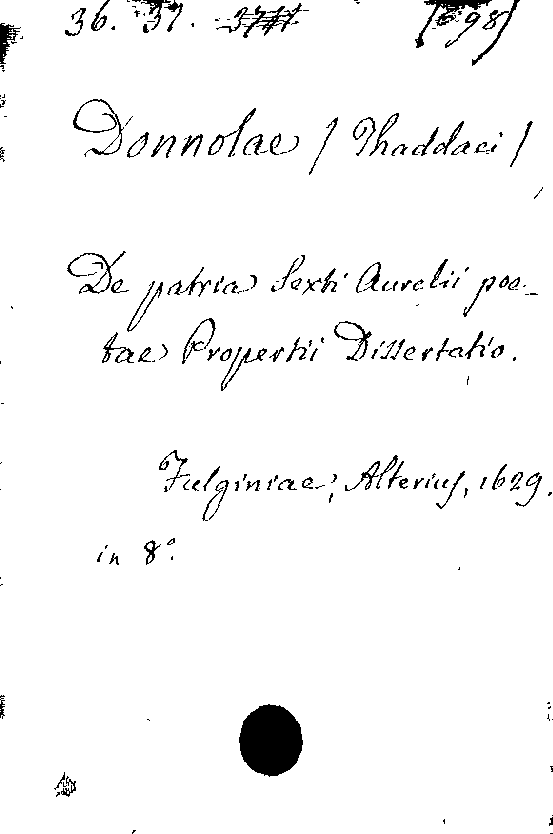 36. 37.
Donnolae / Thaddaei /
De patria Sexti Aurelii poe-
tae Propertii Dissertatio.
Fulginiae, Alterius, 1629.
in 8°.